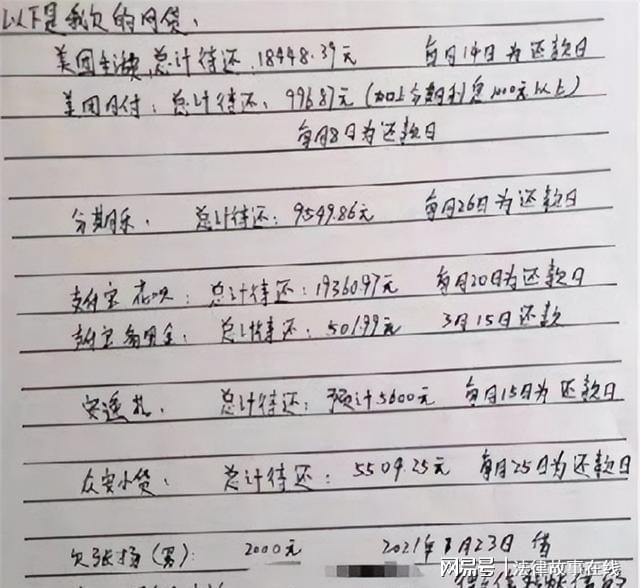 以下是我欠的网贷:
美团生活费,总计待还:18448.39元 每月14日为还款日
美团月付:总计待还:996.87元(加上分期利息1000元以上)
每月8日为还款日
分期乐: 总计待还:9549.86元 每月26日为还款日
支付宝花呗:总计待还:19360.97元 每月20日为还款日
支付宝备用金:总计待还:501.99元 3月15日还款
安逸花: 总计待还:预计5600元 每月15日为还款日
众安小贷: 总计待还:5504.25元 每月25日为还款日
欠张扬(男): 2000元 2021年1月23日借
网易号 | 法律故事在线